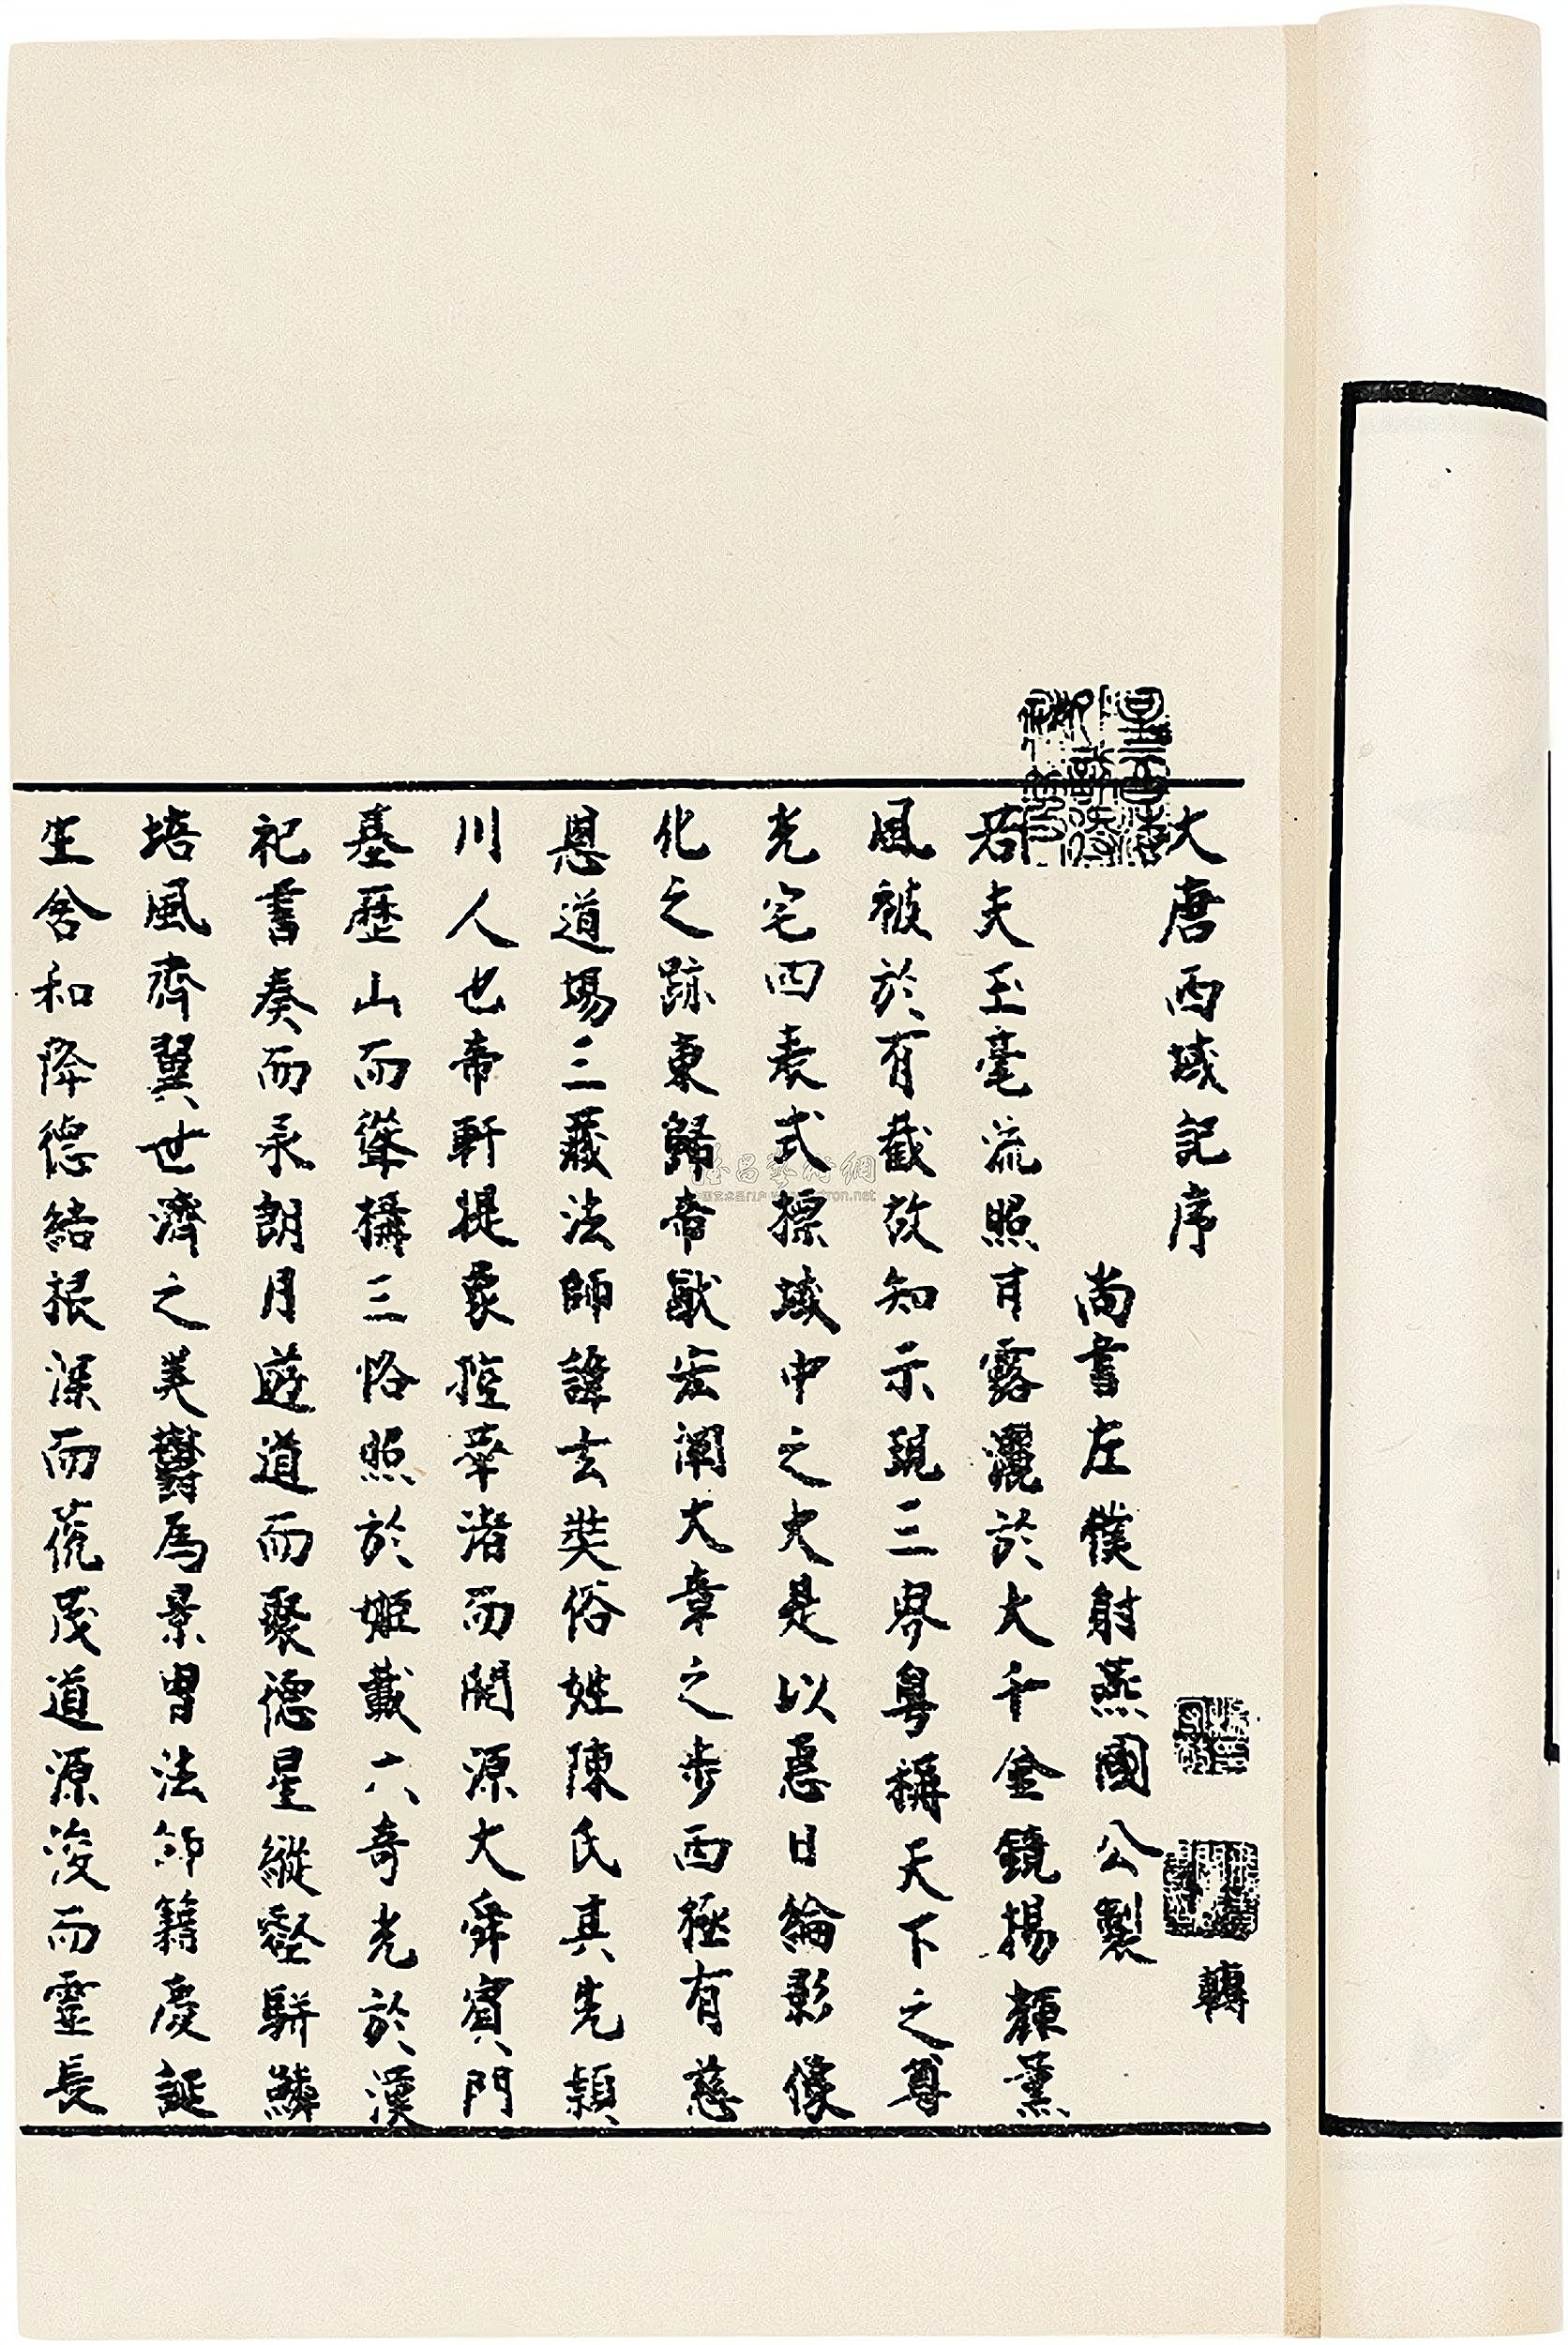 大唐西域記序
轉
尚書左僕射燕國公製
若夫玉毫流照甘露灑於大千金鏡揚輝薰
風被於有截故知示現三界粤稱天下之尊
光宅四表式標域中之大是以惠日綸影像
化之跡東歸帝猷宏闡大章之步西極有慈
恩道場三藏法師諱玄奘俗姓陳氏其先潁
川人也帝軒提象控華渚而開源大舜賓門
基歷山而聳構三恪照於姬載六奇光於漢
祀書奏而承朗月遊道而聚德星縱壑駢鱗
培風齊翼世濟之美鬱爲景胄法師籍慶誕
生含和降德結根深而茂道源浚而靈長